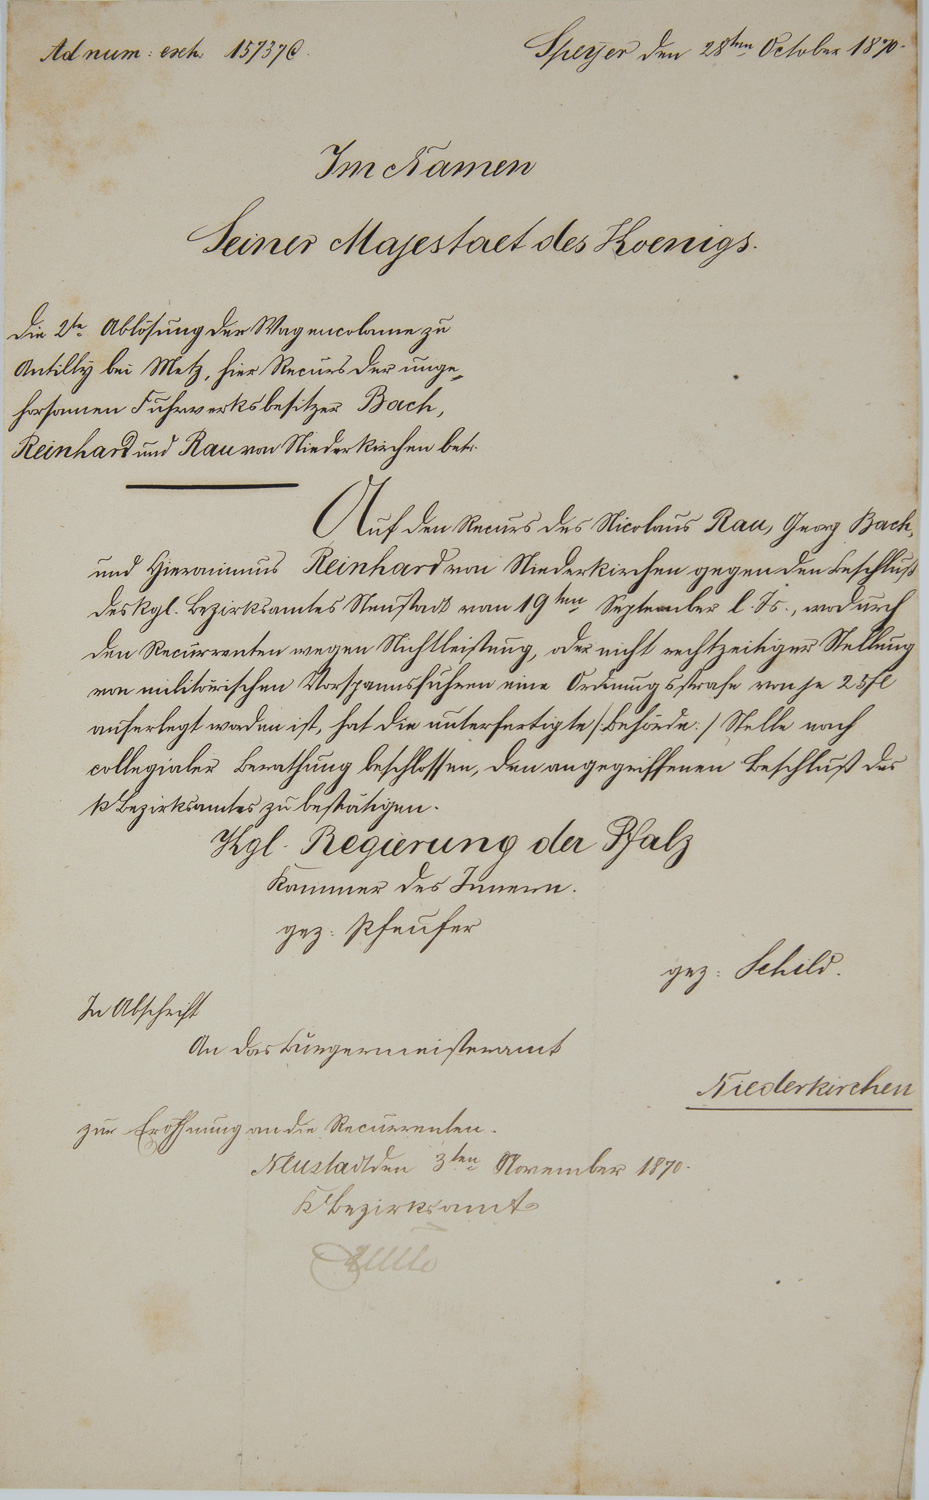 Ad num: exh: 15737 C.
Speyer den 28ten October 1870.
Im Namen
Seiner Majestaet des Koenigs.
Die 2te Ablösung der Wagencolonne zu
Antilly bei Metz, hier Recurs der unge-
horsamen Fuhrwerksbesitzer Bach,
Reinhard und Rau von Niederkirchen betr.
Auf den Recurs des Nicolaus Rau, Georg Bach,
und Hieronimus Reinhard von Niederkirchen gegen den Beschluß
des kgl. Bezirksamtes Neustadt vom 19ten September l. Js., wodurch
den Recurrenten wegen Nichtleistung, oder nicht rechtzeitiger Stellung
von militärischen Vorspannsfuhren eine Ordnungsstrafe von je 25 fl
auferlegt worden ist, hat die unterfertigte /: Behörde :/ Stelle nach
collegialer Berathung beschlossen, den angegriffenen Beschluß des
k Bezirksamtes zu bestätigen.
Kgl. Regierung der Pfalz
Kammer des Innern.
gez: Pfeufer
gez: Schild.
In Abschrift
An das Bürgermeisteramt
Niederkirchen
zur Eröffnung an die Recurrenten.
Neustadt den 3ten November 1870.
K Bezirksamt